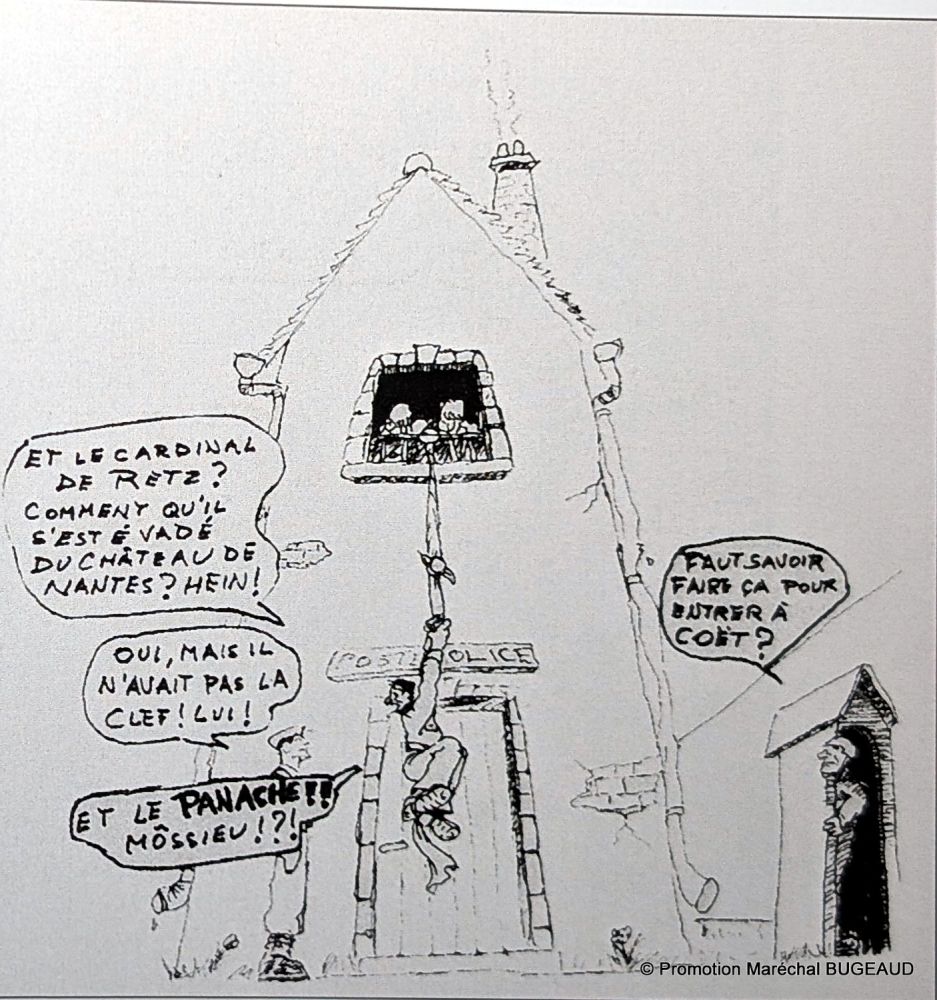 ET LE CARDINAL
DE RETZ?
COMMENT QU'IL
S'EST ÉVADÉ
DU CHÂTEAU DE
NANTES? HEIN!
OUI, MAIS IL
N'AVAIT PAS LA
CLEF! LUI!
ET LE PANACHE!!
MÔSSIEU!?!
POSTE POLICE
FAUT SAVOIR
FAIRE ÇA POUR
ENTRER À
COËT?
© Promotion Maréchal BUGEAUD